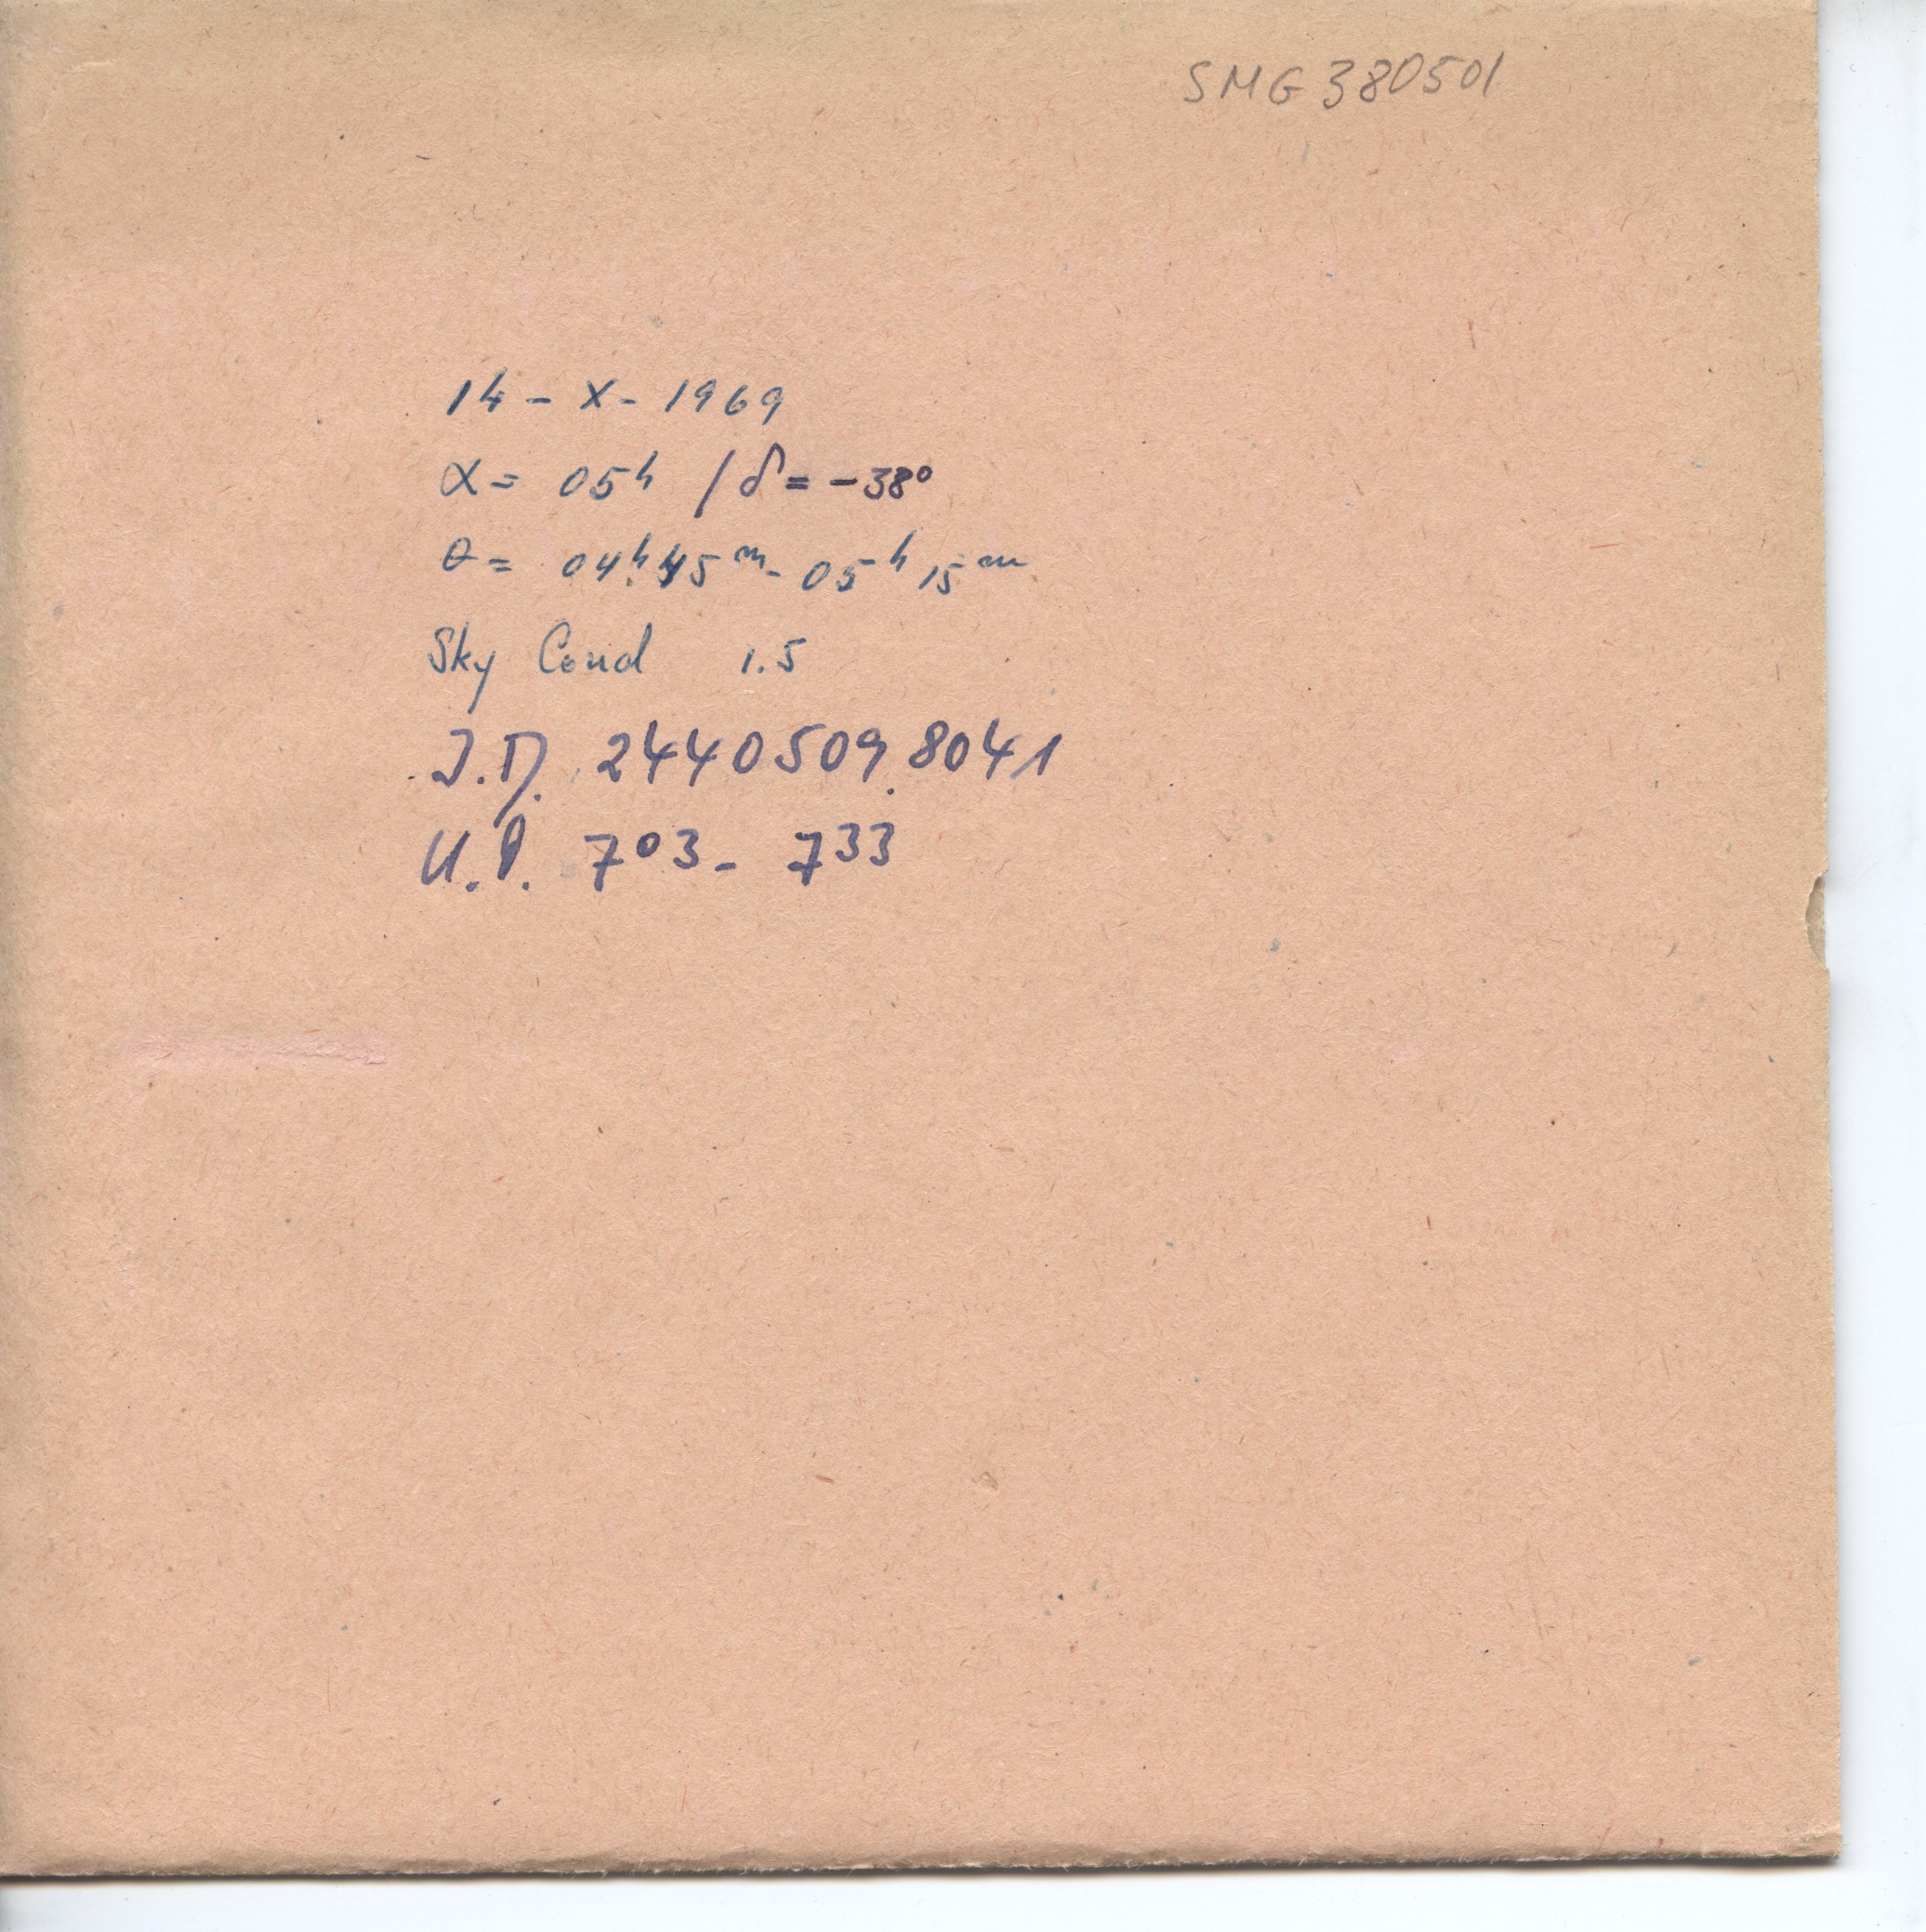 SMG 380501
14 - X - 1969
α = 05h / δ = -38°
θ = 04h 45m - 05h 15m
Sky Cond 1.5
J.D. 2440509.8041
U.T. 703 - 733